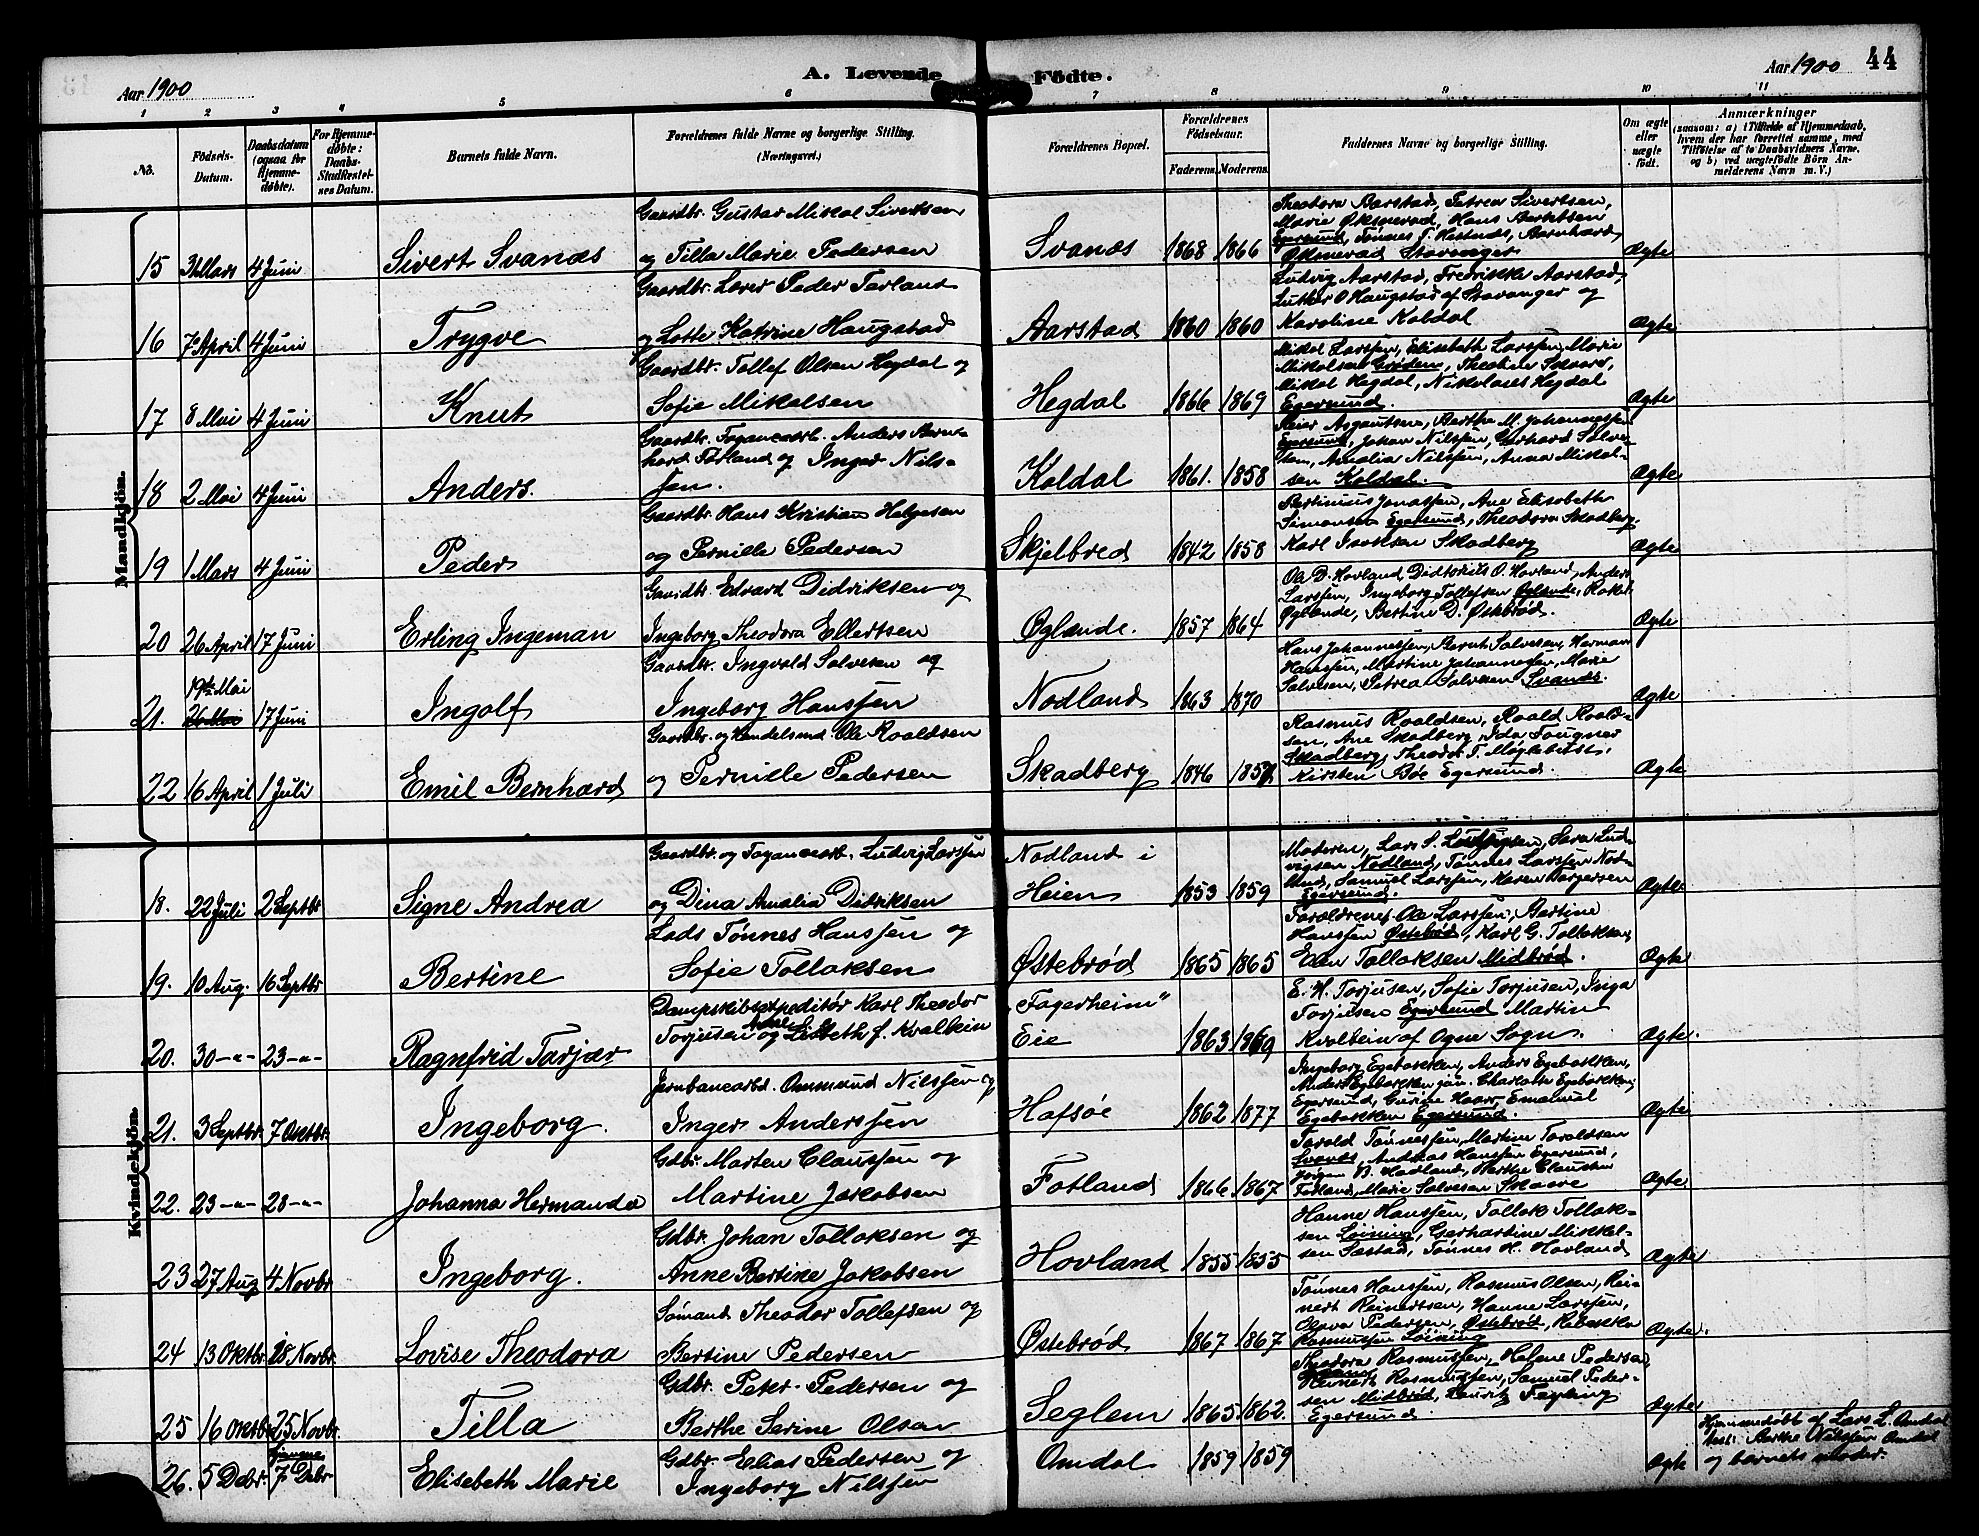 Aar 1900
A. Levende Födte.
Aar 1900
44
1 2 3 4 5 6 7 8 9 10 11
No.
Födsels-Datum.
Daabsdatum (ogsaa for Hjemmedöbte).
For Hjemmedöbte: Daabs-Stadfæstelses Datum.
Barnets fulde Navn.
Forældrenes fulde Navne og borgerlige Stilling. (Næringsvei.)
Forældrenes Bopæl.
Forældrenes Födselsaar.
Faderens. Moderens.
Faddernes Navne og borgerlige Stilling.
Om ægte eller uægte födt.
Anmærkninger (saasom: a) i Tilfælde af Hjemmedaab, hvem der har forrettet samme, med Tilföielse af to Daabsvidners Navne, og b) ved uægtefödte Börn Anmelderens Navn m. V.)
Mandkjön.
15 31 Mars 4 Juni Sivert Svanæs Gaardbr. Gustav Mikal Sivertsen og Tilla Marie Pedersen Svanæs 1868 1866 Theodora Barstad, Petrea Sivertsen, Marie Øksnevad, Hans Berntsen Egersund, Tønnes T. Hestnæs, Bernhard Øksnevad Stavanger Ægte
16 7 April 4 Juni Trygve Gaardbr. Lærer Peder Tarland og Lotte Katrine Haugstad Aarstad 1860 1860 Ludvig Aarstad, Fredrikke Aarstad, Luther O Haugstad af Stavanger og Karoline Koldal Ægte
17 8 Mai 4 Juni Knut Gaardbr. Tollef Olsen Hegdal og Sofie Mikalsen Hegdal 1866 1869 Mikal Larssen, Elisabeth Larssen, Marie Mikalsen Grøden, Theoline Skaare, Mikal Hegdal, Nikolines Hegdal Egersund. Ægte
18 2 Mai 4 Juni Anders. Gaardbr. Fayancearb. Anders Bernhard Tarland og Inger Nilssen. Koldal 1861. 1858 Peier Asgautsen, Berthe M. Johannessen Egersund, Johan Nilssen, Gerhard Salvesen, Amalia Nilssen, Anna Mikalsen Koldal. Ægte
19 1 Mars 4 Juni Peder Gaardbr. Hans Kristian Helgesen og Pernille Pedersen Skjelbred 1842 1858 Bertinius Jonassen, Ane Elisabeth Simonsen Egersund, Theodora Skadberg Karl Isaksen Skadberg Ægte
20 26 April 17 Juni Erling Ingeman Gaardbr. Edvard Didriksen og Ingeborg Theodora Ellertsen Øglænde. 1857 1864 Ola D. Hovland, O. Hovland, Anders Larssen, Ingeborg Tollefsen Øglænde, Rakel Øglænde, Bertine D. Østebrød. Ægte
21. 19de Mai 26 Mai 17 Juni Ingolf Gaardbr. Ingvald Salvesen og Ingeborg Hanssen Nodland 1863 1870 Hans Johannessen, Bernt Salvesen, Herman Hanssen, Martine Johannessen, Marie Salvesen, Petrea Salvesen Svanæs Ægte
22 16 April 1 Juli Emil Bernhard Gaardbr. og Handelsmd Ole Roaldsen og Pernille Pedersen Skadberg 1846 1857 Rasmus Roaldsen, Roald Roaldsen, Ane Skadberg, Ida Fougner Skadberg, Theodor T. Møglebust, Kirsten Bøe Egersund. Ægte
Kvindekjön.
18. 22 Juli 2 Septbr Signe Andrea Gaardbr. og Fayancearb. Ludvig Larssen og Dina Amalia Didriksen Nodland i Heien 1853 1859 Moderen, Lars S. Ludvigsen, Sara Ludvigsen Nodland, Tønnes Larssen Nodland, Samuel Larssen, Karen Torgersen Egersund. Ægte
19. 10 Aug. 16 Septbr Bertine Lods Tønnes Hanssen og Sofie Tollaksen Østebrød 1865 1865 Forældrene, Ole Larssen, Bertine Hanssen Østebrød, Karl G. Tollaksen, Elen Tollaksen Midbrød. Ægte
20. 30 -"- 23 -"- Ragnfrid Torjær Dampskibsexpeditør Karl Theodor Torjusen og Anne Lisbeth f. Kvalbein "Fagerheim" Eie 1863 1869 E. H. Torjusen, Sofie Torjusen, Inga Torjusen Egersund Martin Kvalbein af Ogne Sogn. Ægte.
21. 3 Septbr. 7 Oktbr. Ingeborg. Jernbanearbd. Ommund Nilssen og Inger Anderssen Hafsøe 1862 1877 Ingeborg Egebakken, Anders Egebakken, Anders Egebakken jun. Charlotte Egebakken, Egersund, Gurine Haar, Emanuel Egebakken Egersund. Ægte
22. 23 -"- 28 -"- Johanna Hermanda Gdbr. Morten Claussen og Martine Jakobsen Fotland 1866 1867 Tarald Tønnessen, Martine Taraldsen Svanæs, Andreas Hanssen Egersund, Jørgen B. Hadland, Berthe Clausen Fotland, Marie Salvesen Skaare Ægte
23 27 Aug 4 Novbr Ingeborg. Gdbr. Johan Tollaksen og Anne Bertine Jakobsen Hovland 1855 1855 Hanne Hanssen, Tollak Tollaksen Løining, Gerhartine Mikkelsen Sæstad, Tønnes H. Hovland Ægte
24 13 Oktbr. 28 Novbr. Lovise Theodora Sømand Theodor Tollefsen og Bertine Pedersen Østebrød 1867 1867 Tønnes Hanssen, Rasmus Olsen, Reinert Reinertsen, Hanne Larssen, Oleva Pedersen, Østebrød, Rebekka Rasmussen Løining Ægte.
25 16 Oktbr 25 Novbr. Tilla Gdbr. Peter Pedersen og Berthe Serine Olsen Seglem 1865 1862. Theodora Rasmussen, Helene Pedersen, Reinert Rasmussen, Samuel Pedersen Midbrød, Lauritz Egersund Ægte
26. 5 Debr. hjemme 7 Debr Elisebeth Marie Gdbr. Elias Pedersen og Ingeborg Nilssen Omdal 1859 1859 Ægte Hjemmedøbt af Lars L. Omdal test: Berthe Nilssen Omdal og barnets moder.